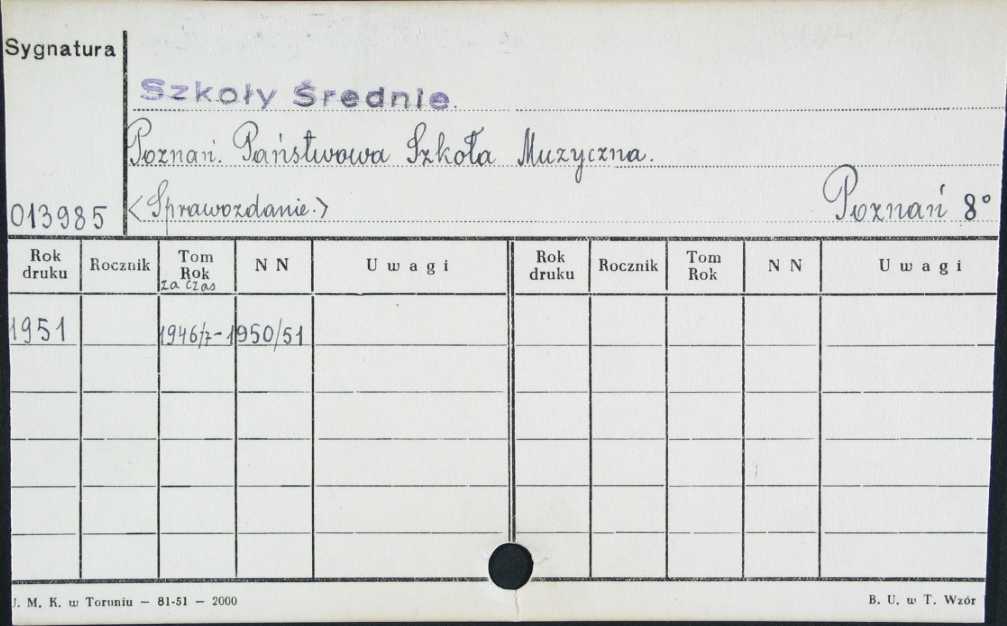 Sygnatura
Szkoły Średnie.
Poznań. Państwowa Szkoła Muzyczna.
013985 <Sprawozdanie.> Poznań 8°
Rok druku Rocznik Tom Rok za czas N N Uwagi Rok druku Rocznik Tom Rok N N Uwagi
1951 1946/7-1950/51
J. M. K. w Toruniu — 81-51 — 2000 B. U. w T. Wzór